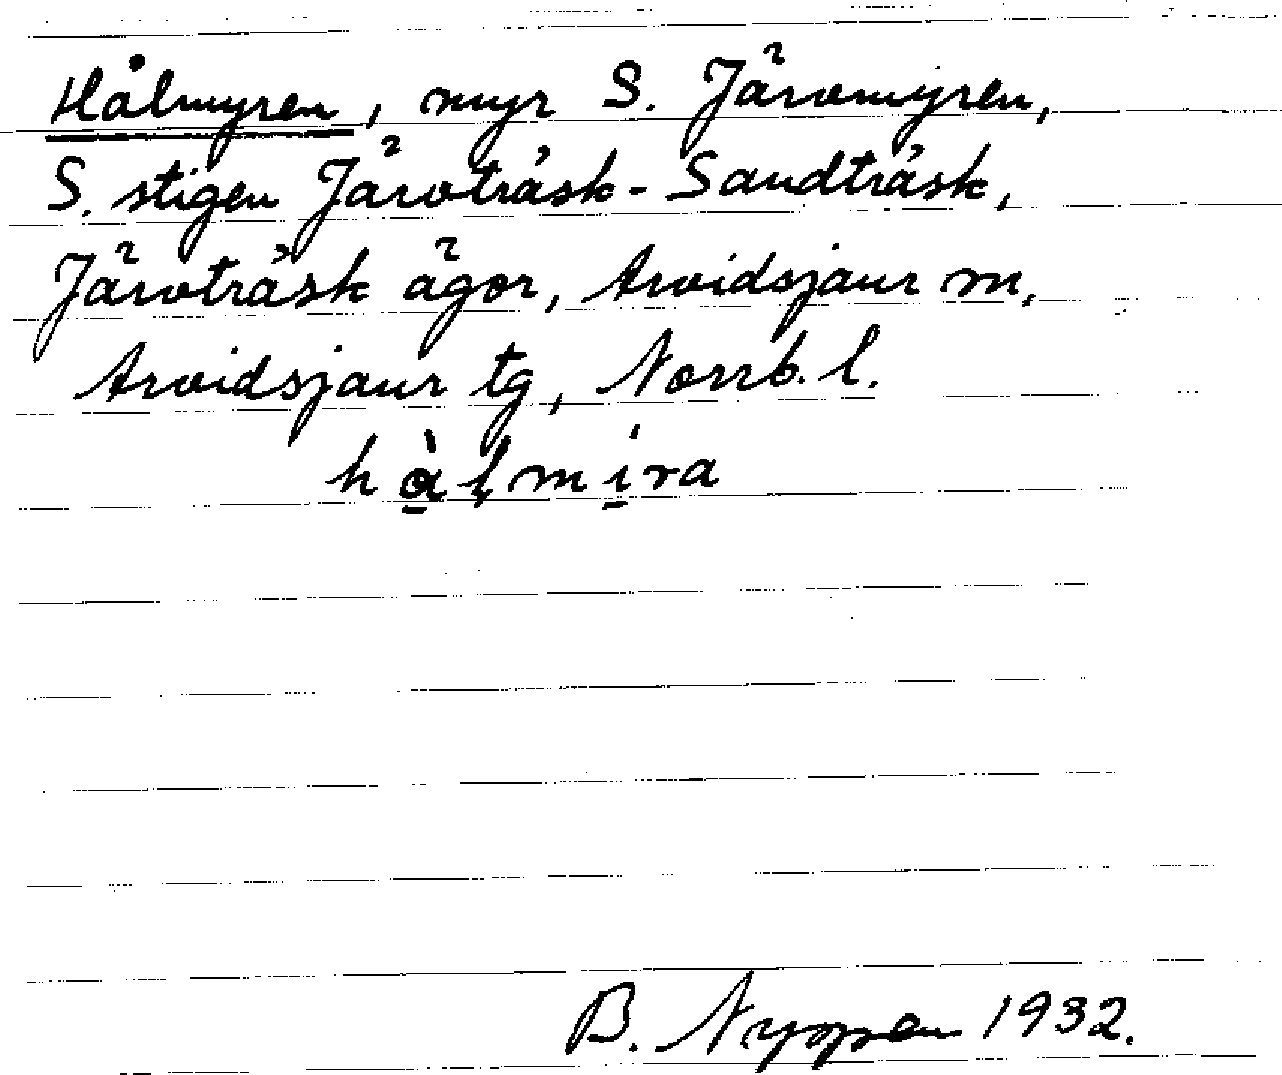 Hålmyren, myr S. Järvmyren,
S. stigen Järvträsk - Sandträsk,
Järvträsk ägor, Arvidsjaur sn,
Arvidsjaur tg, Norrb. l.
hàlmira
B. Nyppen 1932.